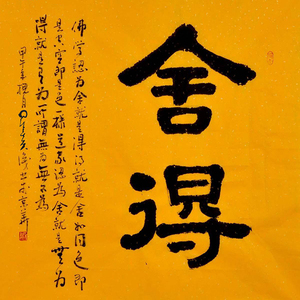 舍得
佛学認为舍就是得得就是舍如同色即
是空空即是色一樣道家認為舍就是無为
得就是有为所謂無为無不為
甲午年